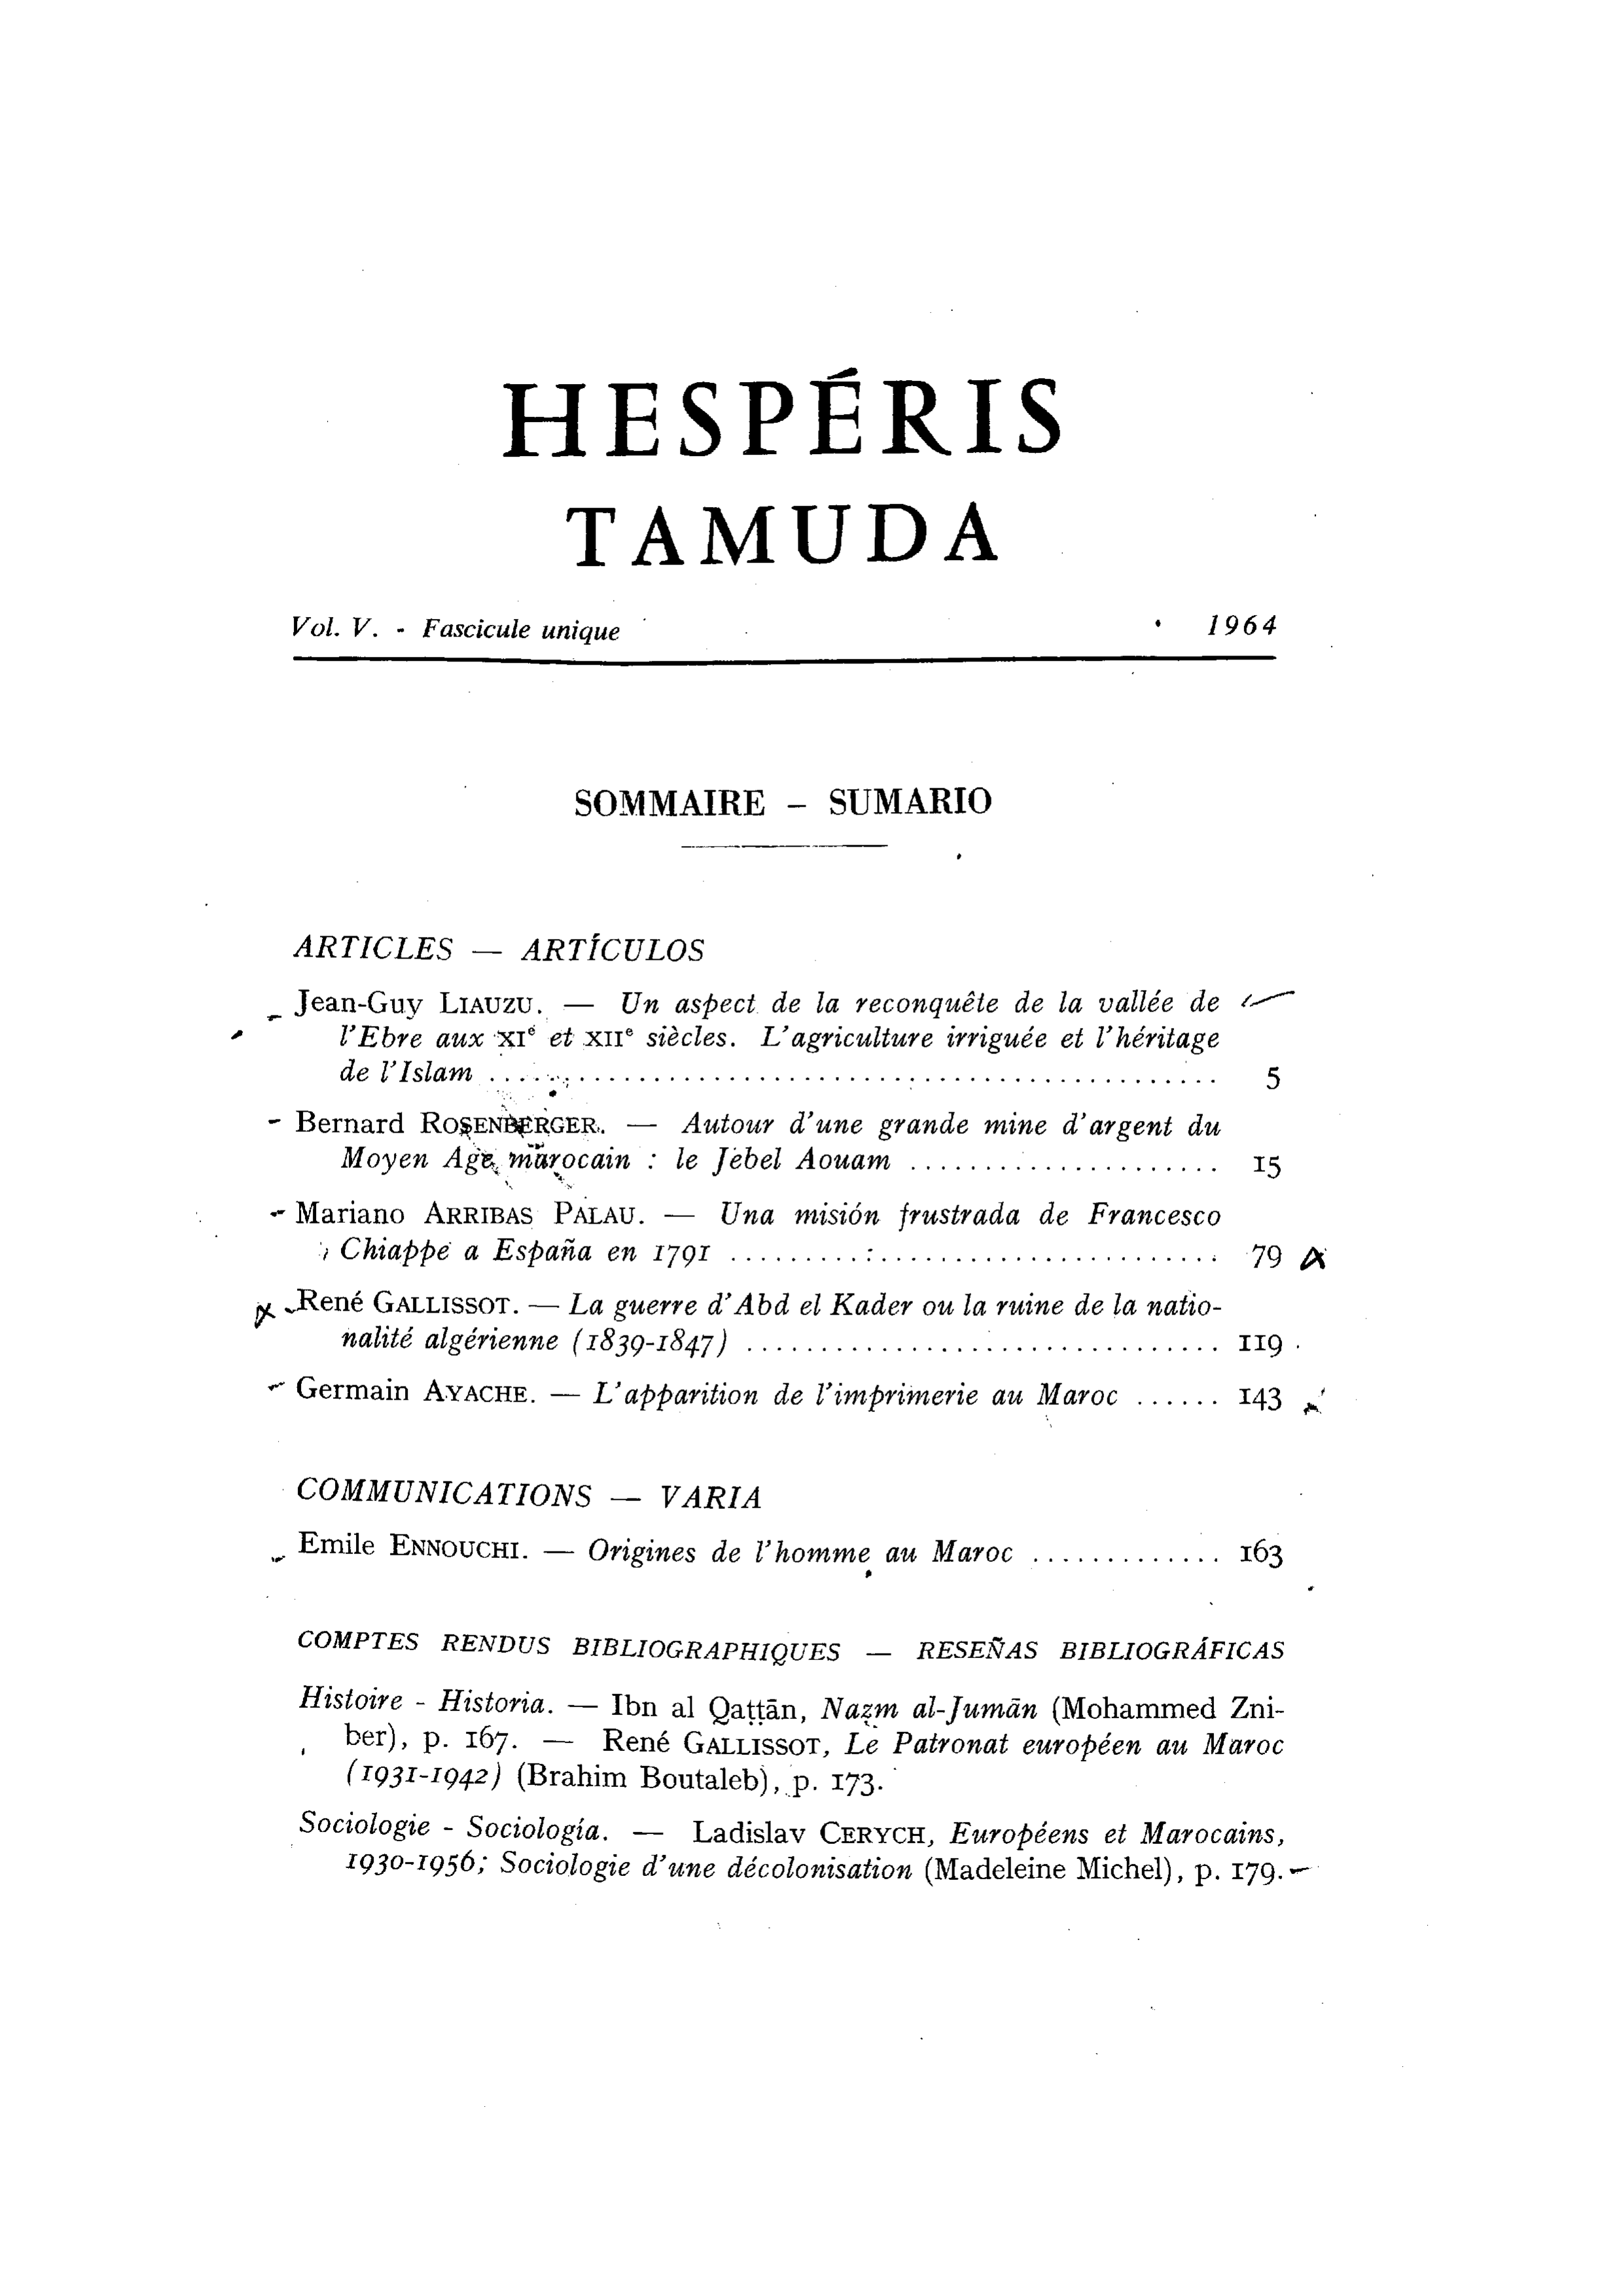 HESPÉRIS
TAMUDA
Vol. V. - Fascicule unique 1964
SOMMAIRE – SUMARIO
ARTICLES — ARTÍCULOS
Jean-Guy LIAUZU. — Un aspect de la reconquête de la vallée de
l'Ebre aux XIe et XIIe siècles. L'agriculture irriguée et l'héritage
de l'Islam .......................................................... 5
Bernard ROSENBERGER. — Autour d'une grande mine d'argent du
Moyen Age marocain : le Jebel Aouam ..................... 15
Mariano ARRIBAS PALAU. — Una misión frustrada de Francesco
Chiappe a España en 1791 ................................. 79
René GALLISSOT. — La guerre d'Abd el Kader ou la ruine de la natio-
nalité algérienne (1839-1847) ................................ 119
Germain AYACHE. — L'apparition de l'imprimerie au Maroc ...... 143
COMMUNICATIONS — VARIA
Emile ENNOUCHI. — Origines de l'homme au Maroc ............. 163
COMPTES RENDUS BIBLIOGRAPHIQUES — RESEÑAS BIBLIOGRÁFICAS
Histoire - Historia. — Ibn al Qaṭṭān, Naẓm al-Jumān (Mohammed Zni-
ber), p. 167. — René GALLISSOT, Le Patronat européen au Maroc
(1931-1942) (Brahim Boutaleb), p. 173.
Sociologie - Sociología. — Ladislav CERYCH, Européens et Marocains,
1930-1956; Sociologie d'une décolonisation (Madeleine Michel), p. 179.